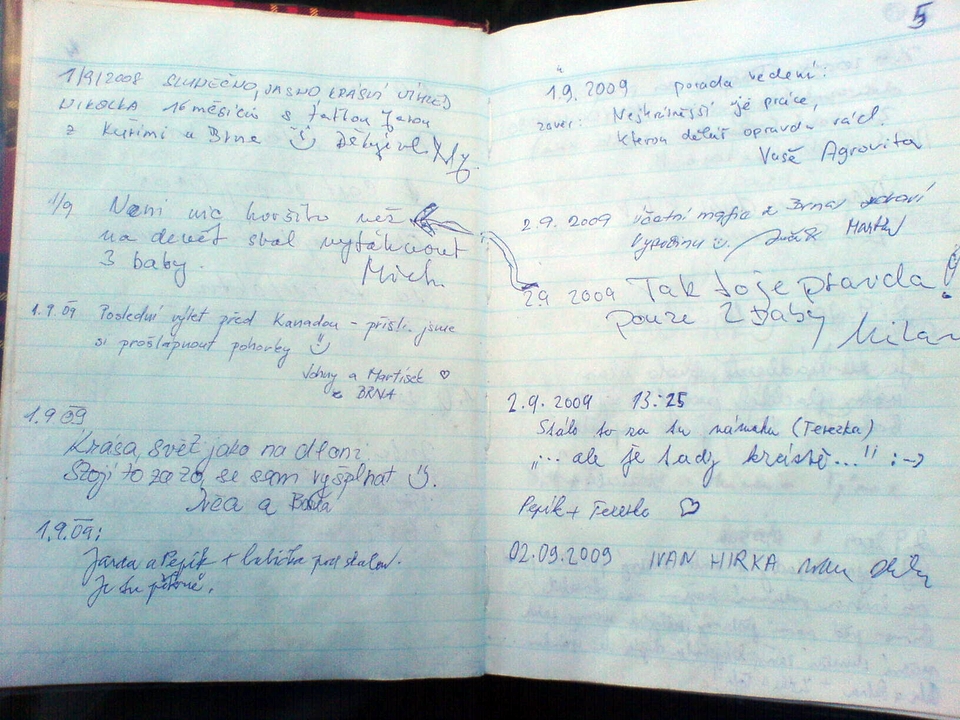 1/9/2008 SLUNEČNO, JASNO KRÁSNÝ VÍHLED
NIKOLKA 16 MĚSÍCŮ S
z Kuřimi u Brna
1/9 Není nic horšího než
na devět skal vytáhnout
3 baby.
Mich.
1.9.09 Poslední výlet před Kanadou - přišli jsme
si prošlápnout pohorky
Johny a Martísek
z BRNA
1.9 09
Krása, svět jako na dlani.
Stojí to za to, se sem vyšplhat
a
1.9.09:
Jarda a Pepík + babička pod skalou.
Je tu pěkně.
5
1.9.2009 porada vedení:
závěr: Nejkrásnější je práce,
kterou děláš opravdu rád.
Vaše Agrovita
2.9.2009 Účetní mafie z Brna
Martin
2.9 2009 Tak to je pravda!
pouze 2 baby
Milan
2.9.2009 13:25
Stálo to za tu námahu (Terezka)
„... ale je tady krásně..." :-)
Pepík + Terezka
02.09.2009 IVAN HIRKA